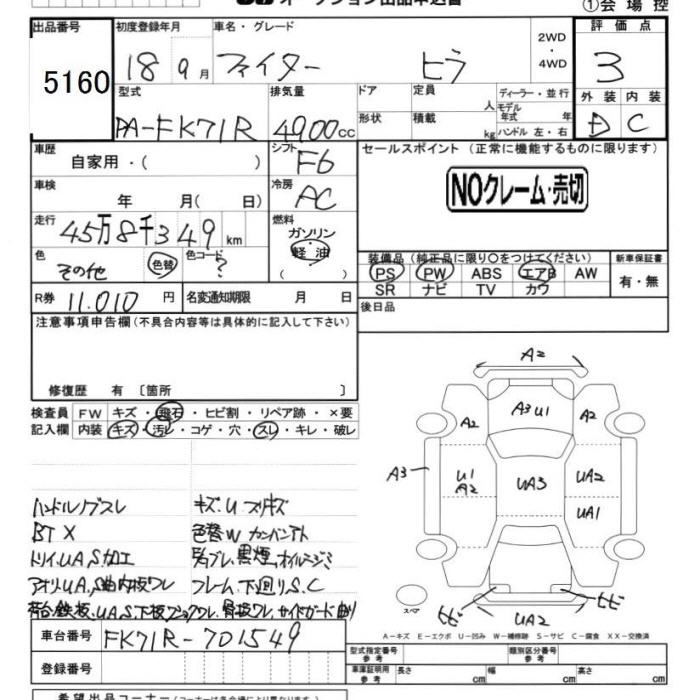 オークション出品申込書
①会場控
出品番号
5160
初度登録年月
18 9月
車名・グレード
ファイター ヒラ
2WD
・
4WD
評価点
3
型式
PA-FK71R
排気量
4900cc
ドア
定員 人
ディーラー・並行
形状
積載 kg
モデル年式 年
ハンドル 左・右
外装 内装
D C
車歴
自家用・( )
シフト
F6
セールスポイント(正常に機能するものに限ります)
NOクレーム・売切
車検
年 月( 日)
冷房
AC
走行
45万8千349km
燃料
ガソリン
軽油
( )
色
その他
色替
色コード
?
装備品(純正品に限り○をつけてください)
PS PW ABS エアB AW
SR ナビ TV カワ
新車保証書
有・無
R券 11.010円
名変通知期限 月 日
後日品
注意事項申告欄(不具合内容等は具体的に記入して下さい)
修復歴 有〔箇所 〕
検査員
記入欄
FW キズ・飛石・ヒビ割・リペア跡・×要
内装 キズ・汚レ・コゲ・穴・スレ・キレ・破レ
ハンドルノブスレ
BT X
トリイ.UA.S.加工
アオリUA.S曲内板ワレ
荷台鉄板.UA.S
キズ.U.スリキズ
色替W カンバンアト
黒煙.オイルニジミ
フレーム.下廻りS.C
サイドガード曲り
A2
A3U1
A2
A2
A3
U1
A2
UA3
UA2
UA1
ヒビ
ヒビ
UA2
スペア
A-キズ E-エクボ U-凹み W-補修跡 S-サビ C-腐食 XX-交換済
車台番号
FK71R-701549
登録番号
型式指定番号
参考
類別区分番号
参考
車庫証明用
参考
長さ cm
幅 cm
高さ cm
希望出品コーナー